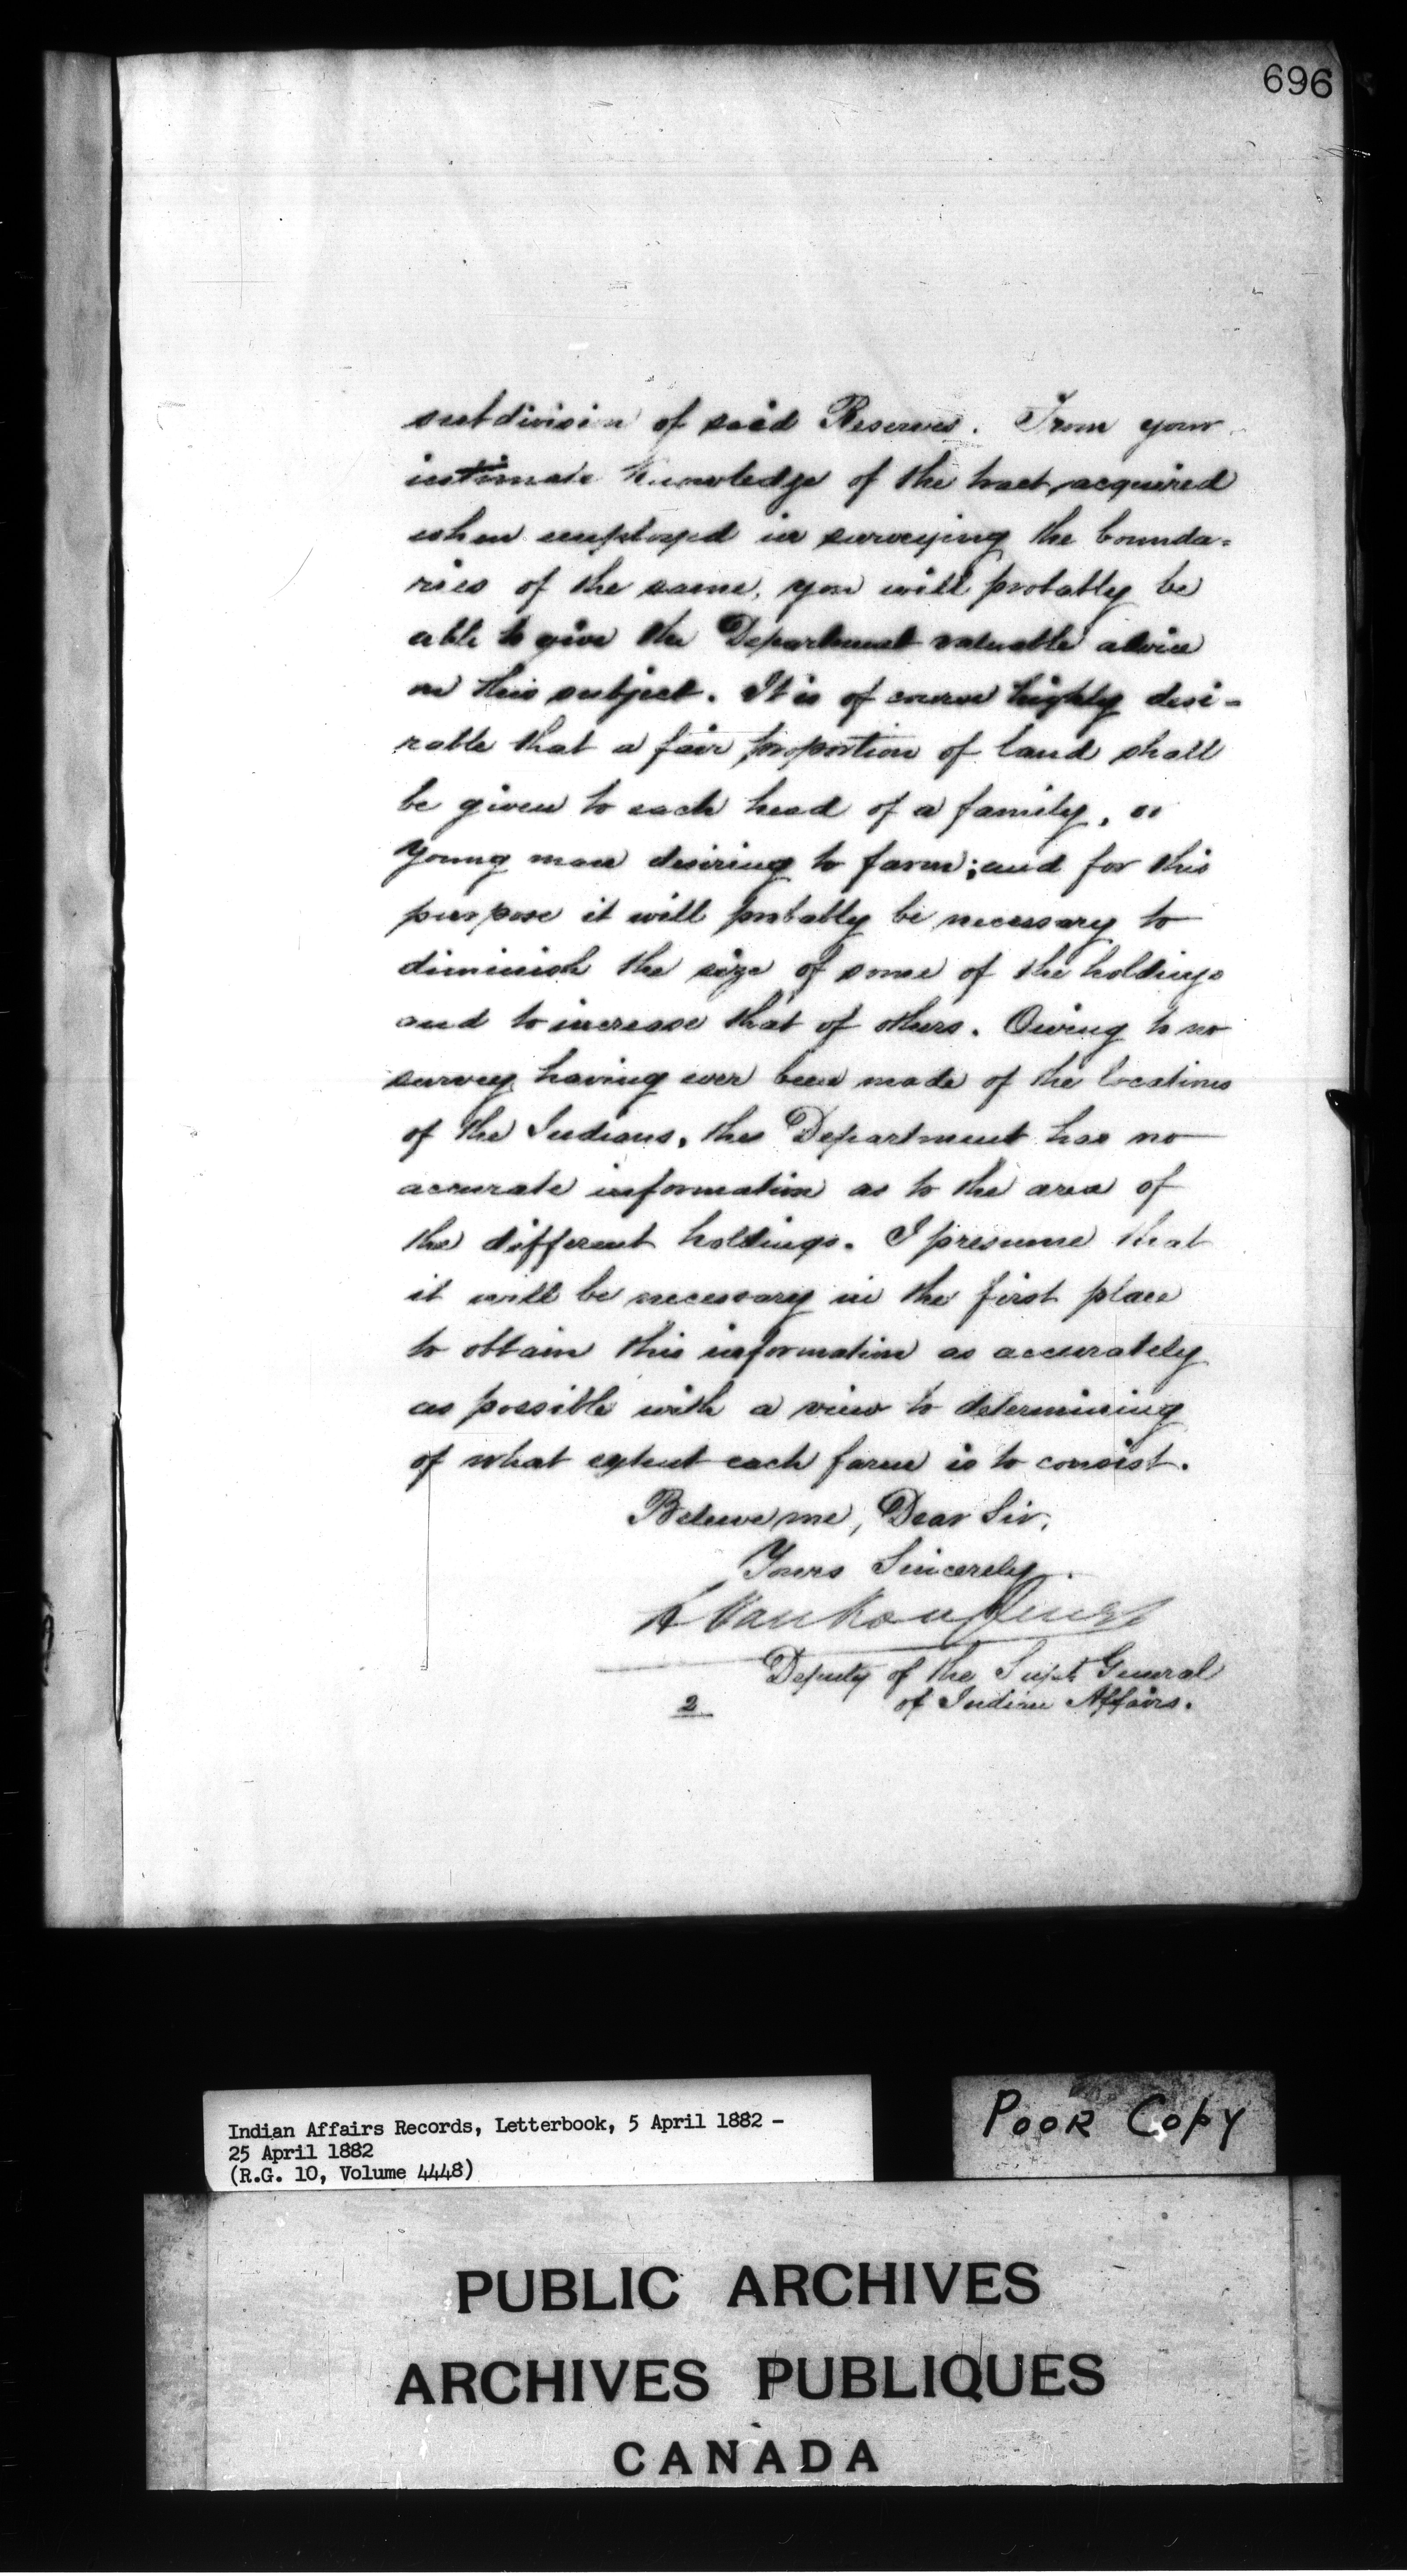 696
subdivision of said Reserves. From your
intimate knowledge of the tract, acquired
when employed in surveying the bounda=
ries of the same, you will probably be
able to give the Department valuable advice
on this subject. It is of course highly desi-
rable that a fair proportion of land shall
be given to each head of a family, or
young man desiring to farm; and for this
purpose it will probably be necessary to
diminish the size of some of the holdings
and to increase that of others. Owing to no
survey having ever been made of the locations
of the Indians, the Department has no
accurate information as to the area of
the different holdings. I presume that
it will be necessary in the first place
to obtain this information as accurately
as possible with a view to determining
of what extent each farm is to consist.
Believe me, Dear Sir,
Yours Sincerely.
L VanKoughnet
Deputy of the Supt. General
of Indian Affairs.
2
Indian Affairs Records, Letterbook, 5 April 1882 -
25 April 1882
(R.G. 10, Volume 4448)
POOR COPY
PUBLIC ARCHIVES
ARCHIVES PUBLIQUES
CANADA